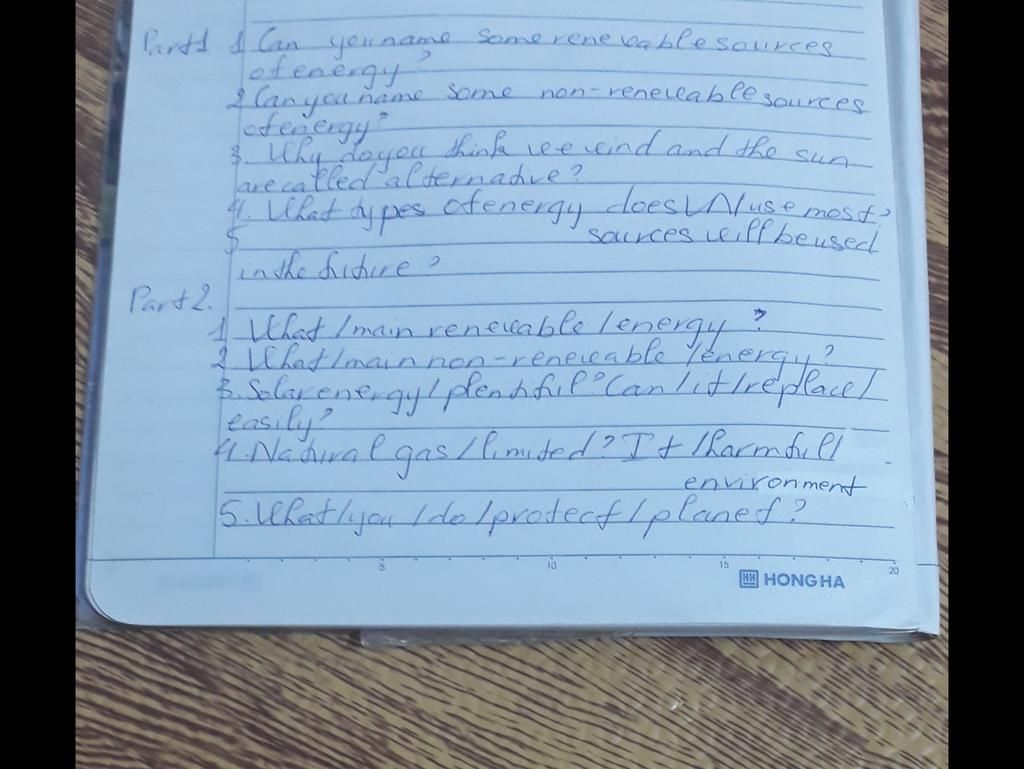 Part 1 1 Can you name some renewable sources
of energy?
2 Can you name some non-renewable sources
of energy?
3. Why do you think we wind and the sun
are called alternative?
4. What types of energy does VN use most?
5 sources will be used
in the future?
Part 2.
1 What / main renewable / energy ?
2 What / main non-renewable / energy?
3. Solar energy / plentiful? Can / it / replace /
easily?
4. Natural gas / limited? It / harmfull /
environment
5. What / you / do / protect / planet?
5 10 15 20
HH HONG HA